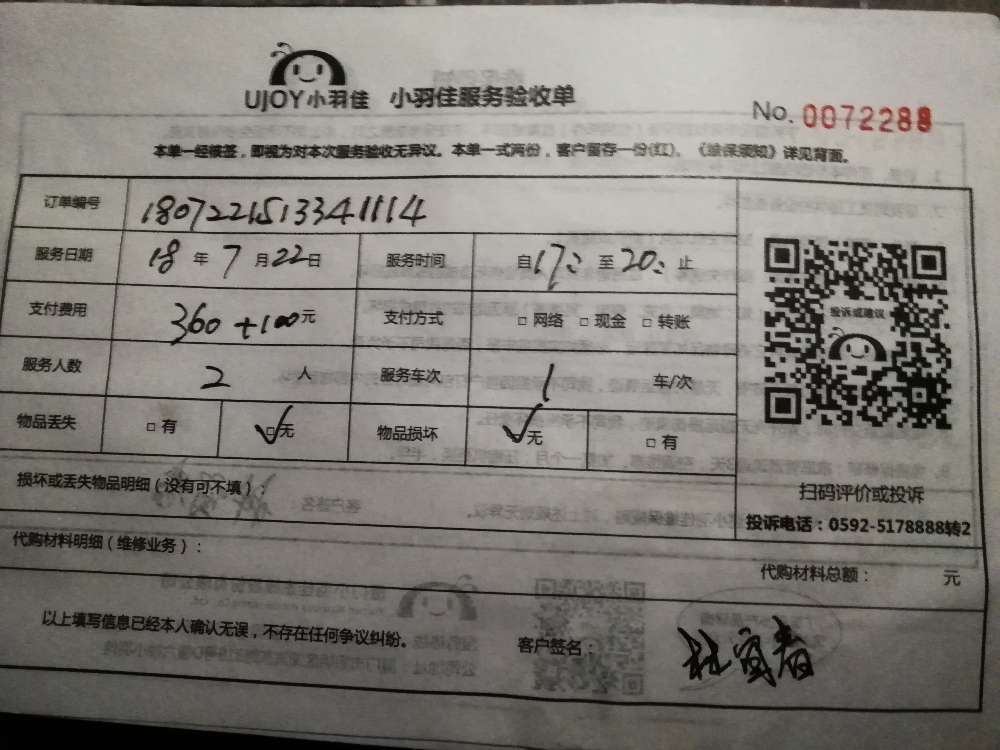 UJOY小羽佳 小羽佳服务验收单
No. 0072288
本单一经核签，即视为对本次服务验收无异议。本单一式两份，客户留存一份(红)，《维保须知》详见背面。
订单编号 180722151334111​4
服务日期 18 年 7 月 22 日 服务时间 自 17: 至 20: 止
支付费用 360 +100 元 支付方式 □ 网络 □ 现金 □ 转账
服务人数 2 人 服务车次 1 车/次
物品丢失 □ 有 ☑ 无 物品损坏 ☑ 无 □ 有
投诉或建议
扫码评价或投诉
投诉电话：0592-5178888转2
损坏或丢失物品明细（没有可不填）：
代购材料明细（维修业务）：
代购材料总额： 元
以上填写信息已经本人确认无误，不存在任何争议纠纷。 客户签名：